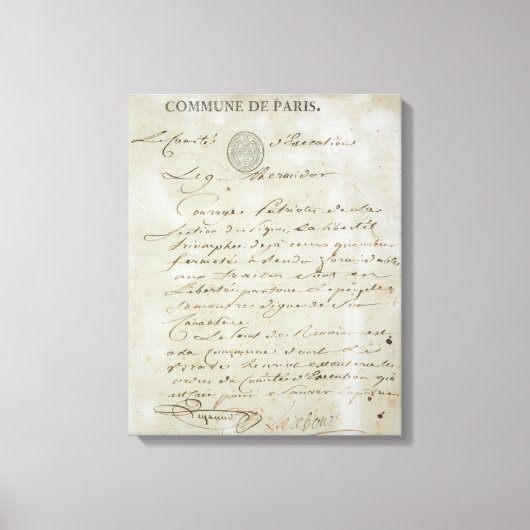 COMMUNE DE PARIS.
Le Comité d'Execution
Le 9 thermidor
Courage Patriotes de La
Section des Piques, La liberté
triomphe deja ceux que leur
fermeté a rendu formidables
aux traitres sont en
Liberté partout Le peuple
se montre digne de Son
Caractere
Le Point de Reunion est
a la Commune dont Le
brave henriot executera les
ordres du Comité d'Execution qui
est créé pour Sauver La patrie
Legrand Lerebours